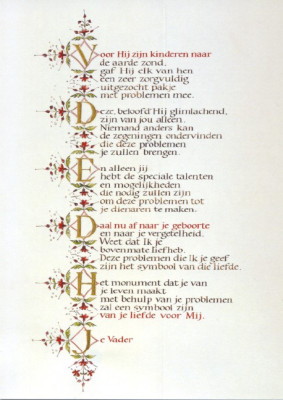 Voor Hij zijn kinderen naar
de aarde zond,
gaf Hij elk van hen
een zeer zorgvuldig
uitgezocht pakje
met problemen mee.
Deze, beloofd Hij glimlachend,
zijn van jou alleen.
Niemand anders kan
de zegeningen ondervinden
die deze problemen
je zullen brengen.
En alleen jij
hebt de speciale talenten
en mogelijkheden
die nodig zullen zijn
om deze problemen tot
je dienaren te maken.
Daal nu af naar je geboorte
en naar je vergetelheid.
Weet dat Ik je
bovenmate liefheb.
Deze problemen die Ik je geef
zijn het symbool van die liefde.
Het monument dat je van
je leven maakt
met behulp van je problemen
zal een symbool zijn
van je liefde voor Mij.
Je Vader